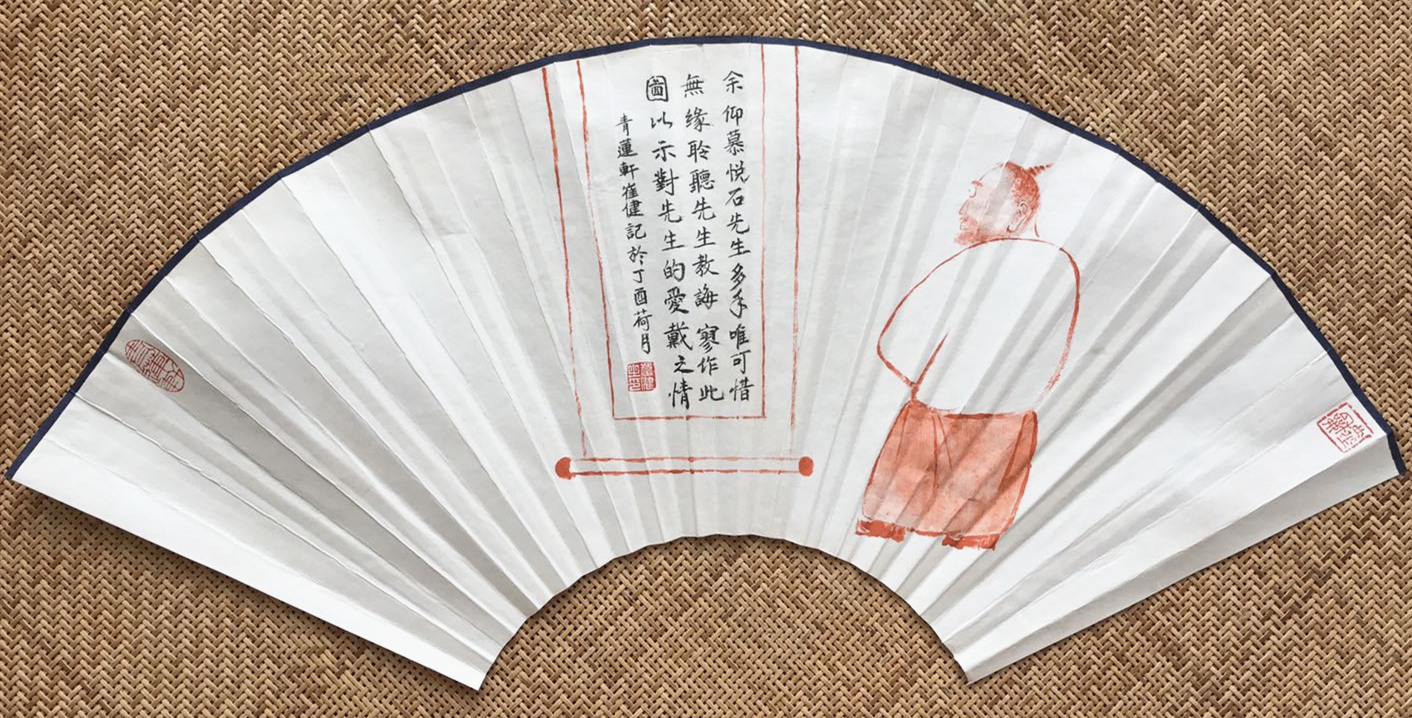 余仰慕悦石先生多年唯可惜
無緣聆聽先生教誨寥作此
圖以示對先生的愛戴之情
青蓮軒崔健記於丁酉荷月